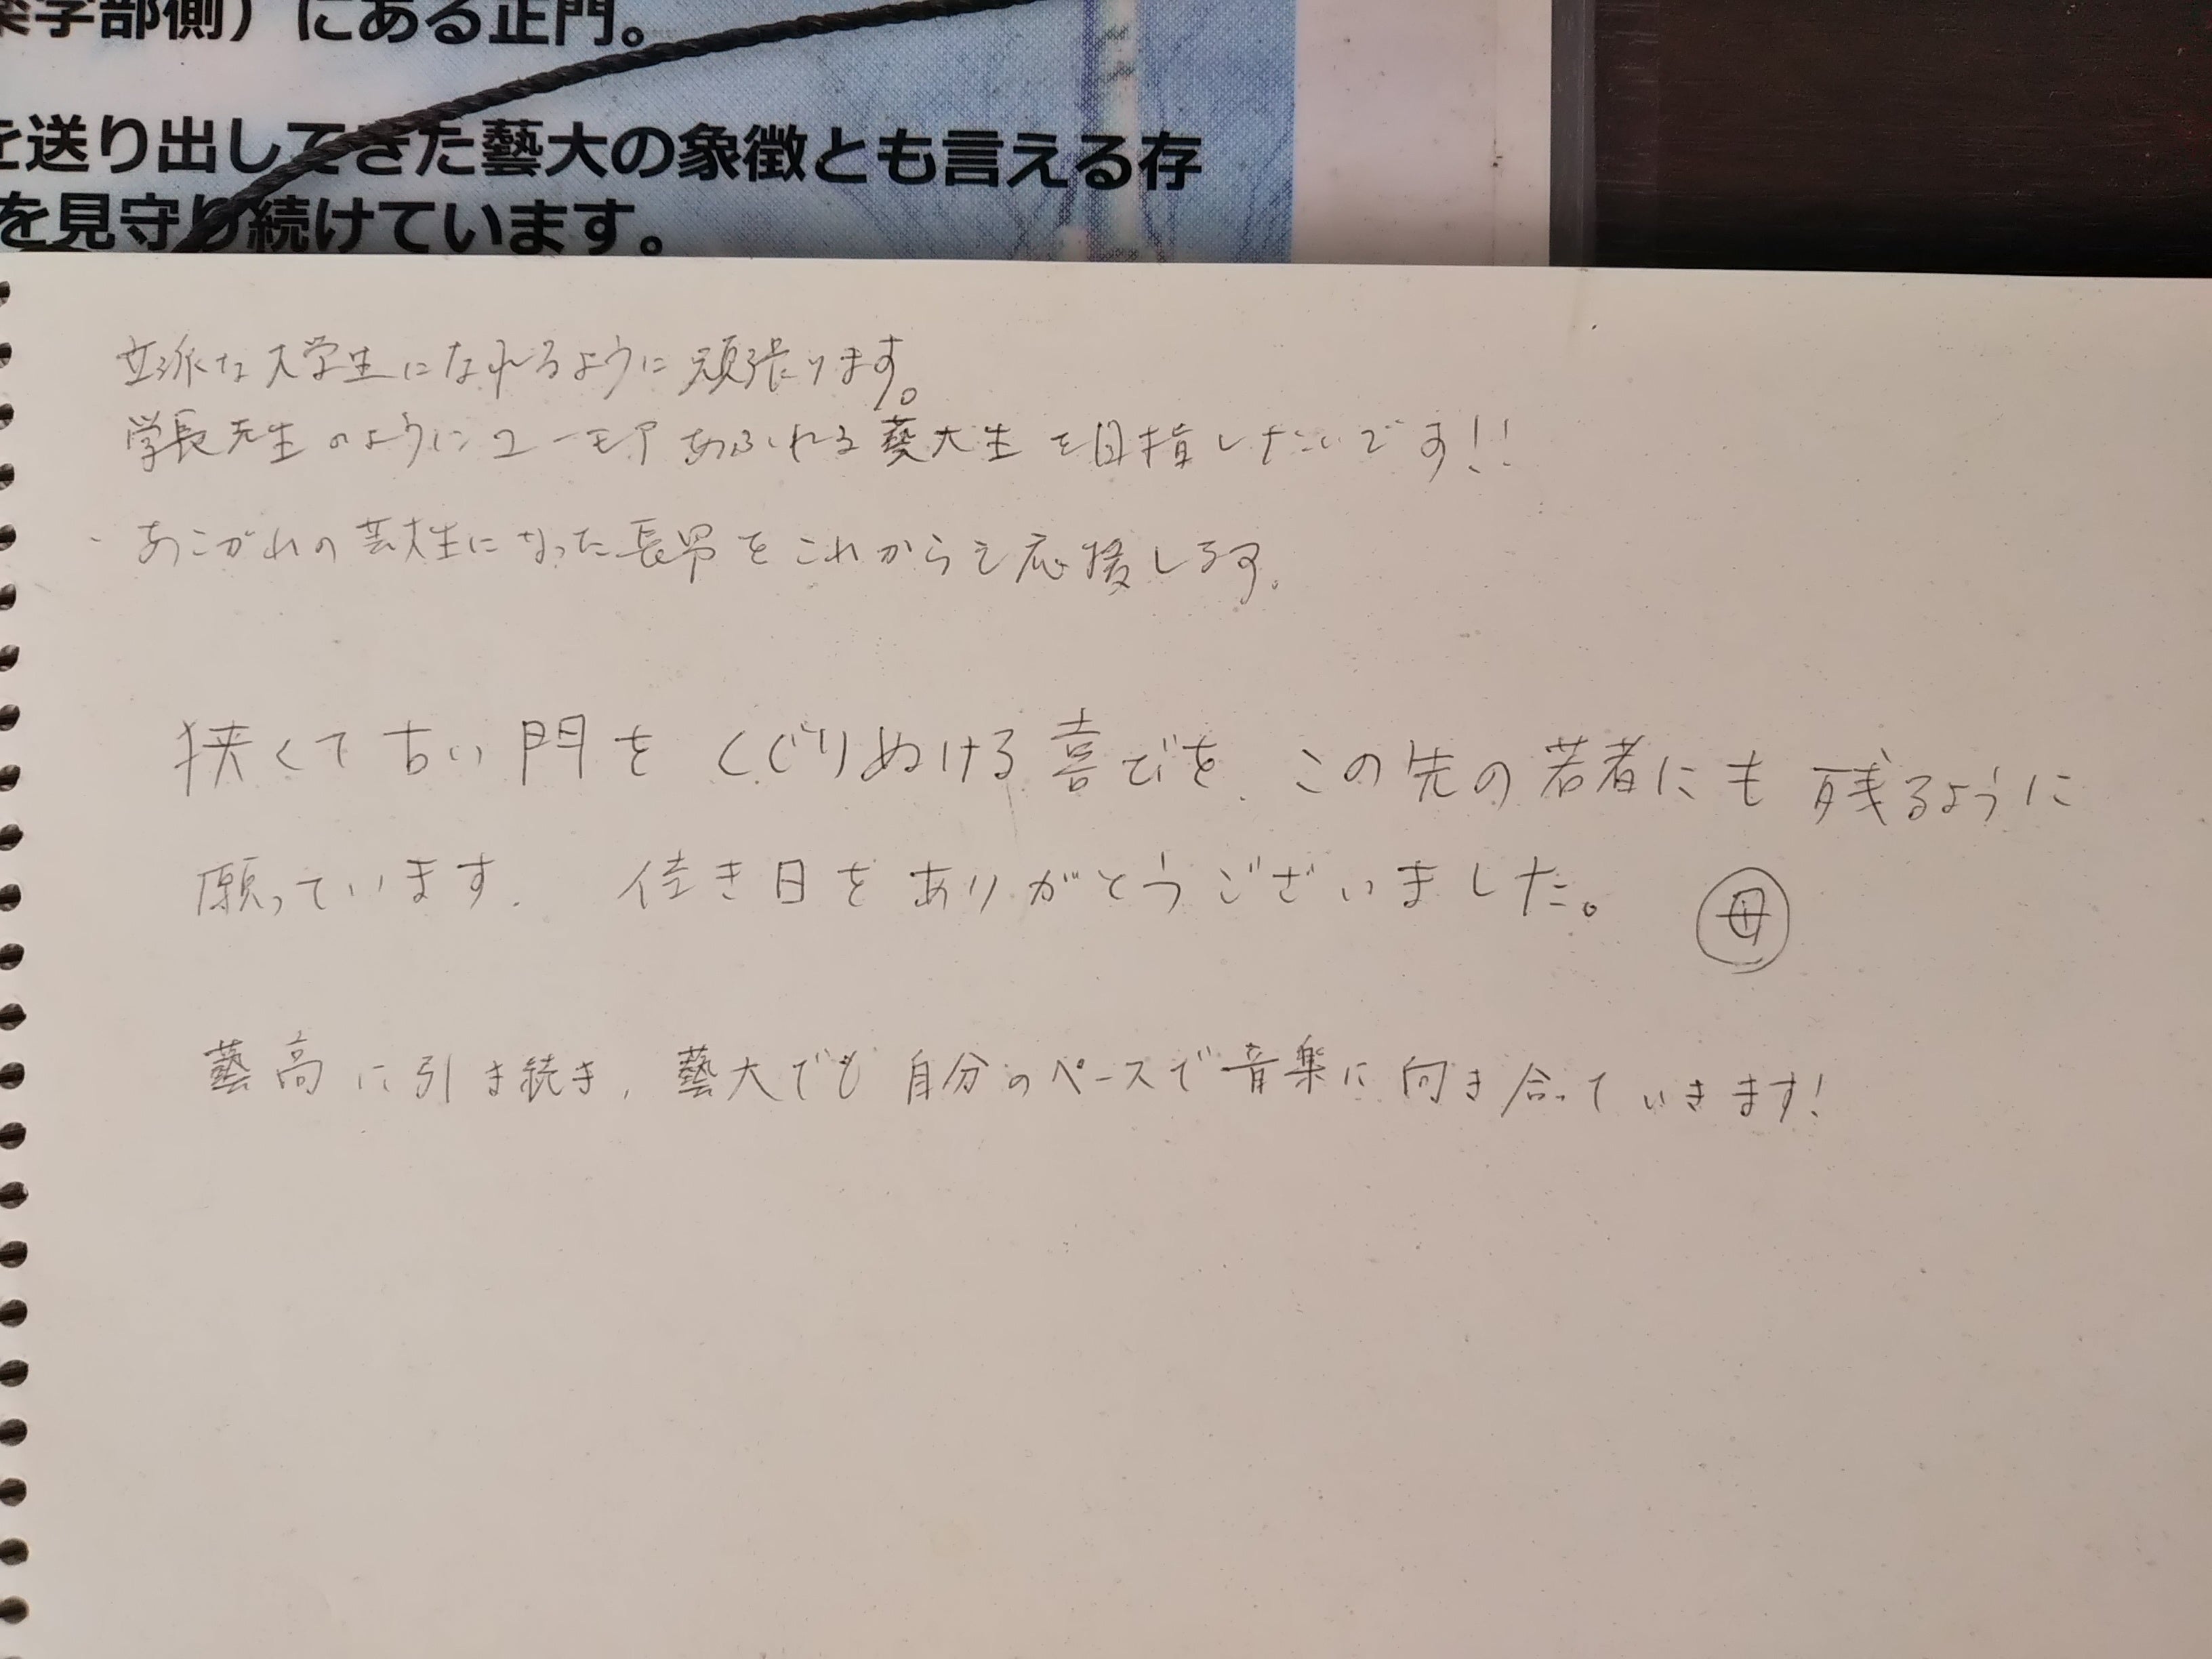 楽学部側）にある正門。
を送り出してきた藝大の象徴とも言える存
を見守り続けています。
立派な大学生になれるように頑張ります。
学長先生のようにユーモアあふれる藝大生を目指したいです!!
あこがれの芸大生になった長男をこれからも応援します。
狭くて古い門をくぐりぬける喜びを、この先の若者にも残るように
願っています. 佳き日をありがとうございました。 母
藝高に引き続き, 藝大でも自分のペースで音楽に向き合っていきます!